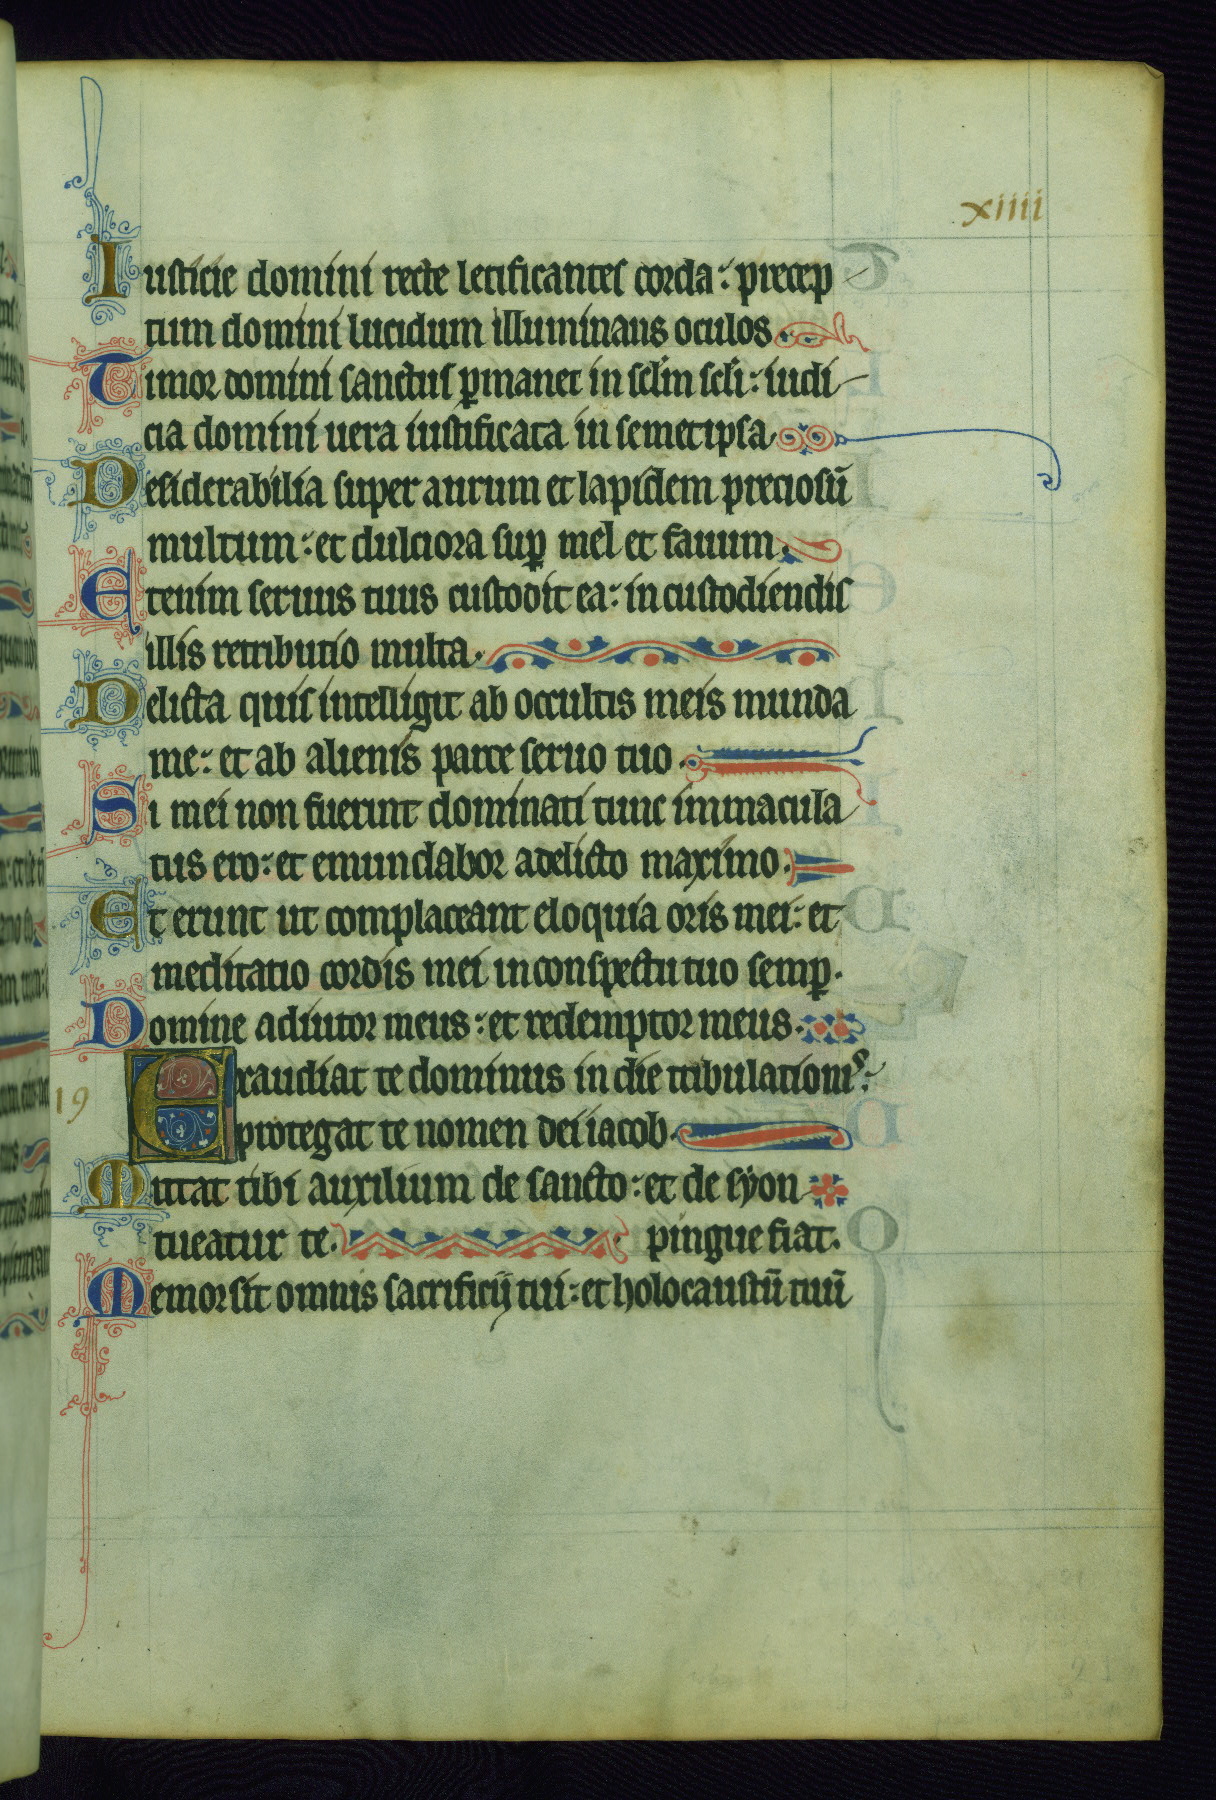 xiiii
Iusticie domini recte letificantes corda: precep
tum domini lucidum illuminans oculos.
Timor domini sanctus p̱manet in sclm scli: iudi
cia domini uera iustificata in semetipsa.
Desiderabilia super aurum et lapidem preciosū
multum: et dulciora sup̱ mel et fauum.
Etenim seruus tuus custodit ea: in custodiendis
illis retributio multa.
Delicta quis intelligit ab occultis meis munda
me: et ab alienis parce seruo tuo.
Si mei non fuerint dominati tunc immacula
tus ero: et emundabor adelicto maximo.
Et erunt ut complaceant eloquia oris mei: et
meditatio cordis mei in conspectu tuo semp̱.
Domine adiutor meus: et redemptor meus.
19
Exaudiat te dominus in die tribulationis:
protegat te nomen dei iacob.
Mittat tibi auxilium de sancto: et de syon
tueatur te. pingue fiat.
Memor sit omnis sacrificij tui: et holocaustū tuū